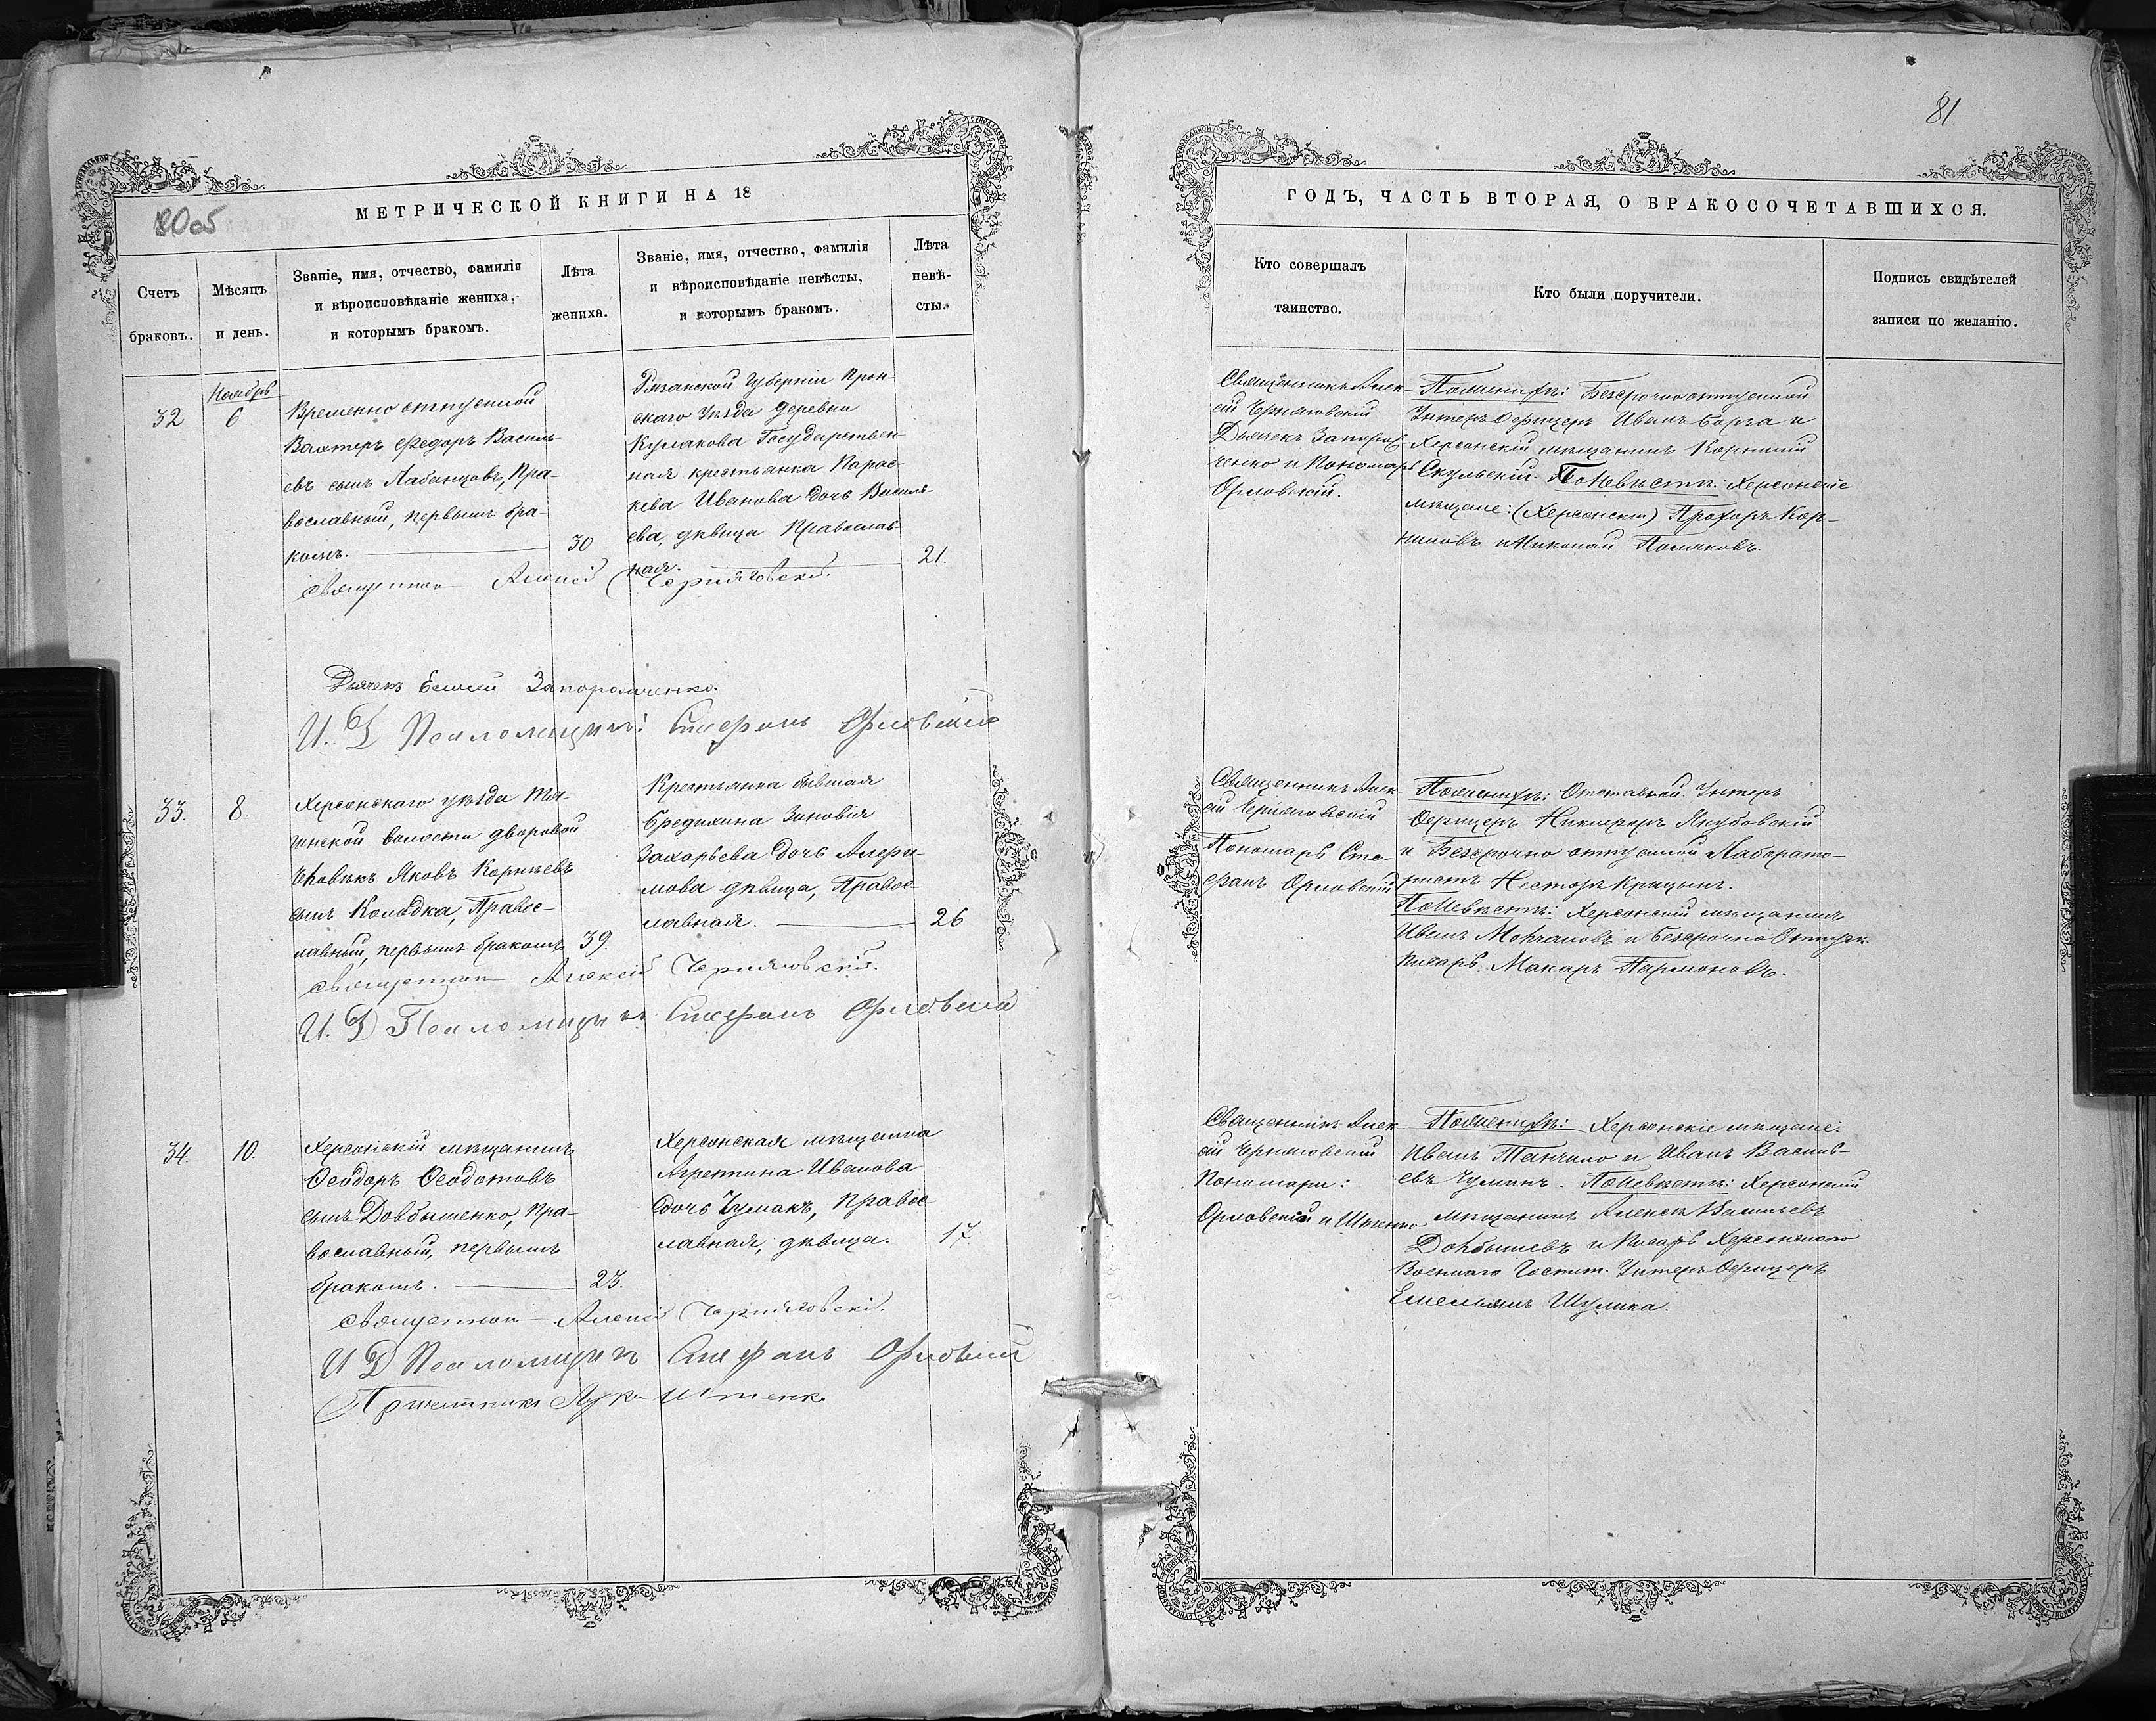 80об
МЕТРИЧЕСКОЙ КНИГИ НА 18
Счетъ
браковъ.
Мѣсяцъ
и день.
Званіе, имя, отчество, фамилія
и вѣроисповѣданіе жениха,
и которымъ бракомъ.
Лѣта
жениха.
Званіе, имя, отчество, фамилія
и вѣроисповѣданіе невѣсты,
и которымъ бракомъ.
Лѣта
невѣ-
сты.
32
Ноябрь
6
Временно отпускной
Вахтеръ Федоръ Василь-
евъ сынъ Лабанцовъ, Пра-
вославный, первымъ бра-
комъ.
30
Рязанской Губерніи Прон-
скаго Уѣзда деревни
Кулакова Государствен-
ная крестьянка Парас-
кева Иванова дочь Василь-
ева, дѣвица Православ-
ная.
21.
Священникъ Алексій Черняговскій.
Дьячекъ Запорожченко.
И. Д Псаломщика: Стефанъ Орловскій
33.
8.
Херсонскаго уѣзда
волости дворовой
человѣкъ Яковъ Корнѣевъ
сынъ Колодка, Правос-
лавный, первымъ бракомъ
39.
Крестьянка бывшая
Бредихина Зиновія
Захарьева дочь Алефи-
мова дѣвица, Правос-
лавная.
26
Священникъ Алексій Черняговскій.
И. Д Псаломщика Стефанъ Орловскій
34.
10.
Херсонскій мѣщанинъ
Ѳеодоръ Ѳеодотовъ
сынъ Довбышенко, Пра-
вославный, первымъ
бракомъ.
23.
Херсонская мѣщанка
Агрепина Иванова
дочь Чумакъ, Правос-
лавная, дѣвица.
17
Священникъ Алексій Черняговскій.
И Д Псаломщика Стефанъ Орловскій
Причетникъ Лука Штенко
81
ГОДЪ, ЧАСТЬ ВТОРАЯ, О БРАКОСОЧЕТАВШИХСЯ.
Кто совершалъ
таинство.
Кто были поручители.
Подпись свидѣтелей
записи по желанію.
Священникъ Алек-
сій Черняговскій
Дьячекъ Запорож-
ченко и Пономарь
Орловскій.
По женихѣ: Безсрочно отпускной
Унтеръ Офицеръ Иванъ Борза и
Херсонскій мѣщанинъ Корнилій
Скульскій. По Невѣстѣ: Херсонскіе
мѣщане: (Херсонскіи) Прохоръ Кор-
ниловъ и Николай Поляковъ.
Священникъ Алек-
сій Черняговскій
Пономарь Сте-
фанъ Орловскій
По женихѣ: Отставной Унтеръ
Офицеръ Никифоръ Якубовскій
и Безсрочно отпускной Лаборато-
ристъ Несторъ Крицынъ.
По Невѣстѣ: Херсонскій мѣщанинъ
Иванъ Молчановъ и Безсрочно Отпуск.
писарь Макаръ Пармоновъ.
Священникъ Алек-
сій Черняговскій
Пономари:
Орловскій и Штенко
По женихѣ: Херсонскіе мѣщане:
Иванъ Танчило и Иванъ Василь-
евъ Чулинъ. По Невѣстѣ: Херсонскій
мѣщанинъ Алексѣй Васильевъ
Довбышевъ и Писарь Херсонскаго
Военнаго Госпит. Унтеръ Офицеръ
Емельянъ Шулика.